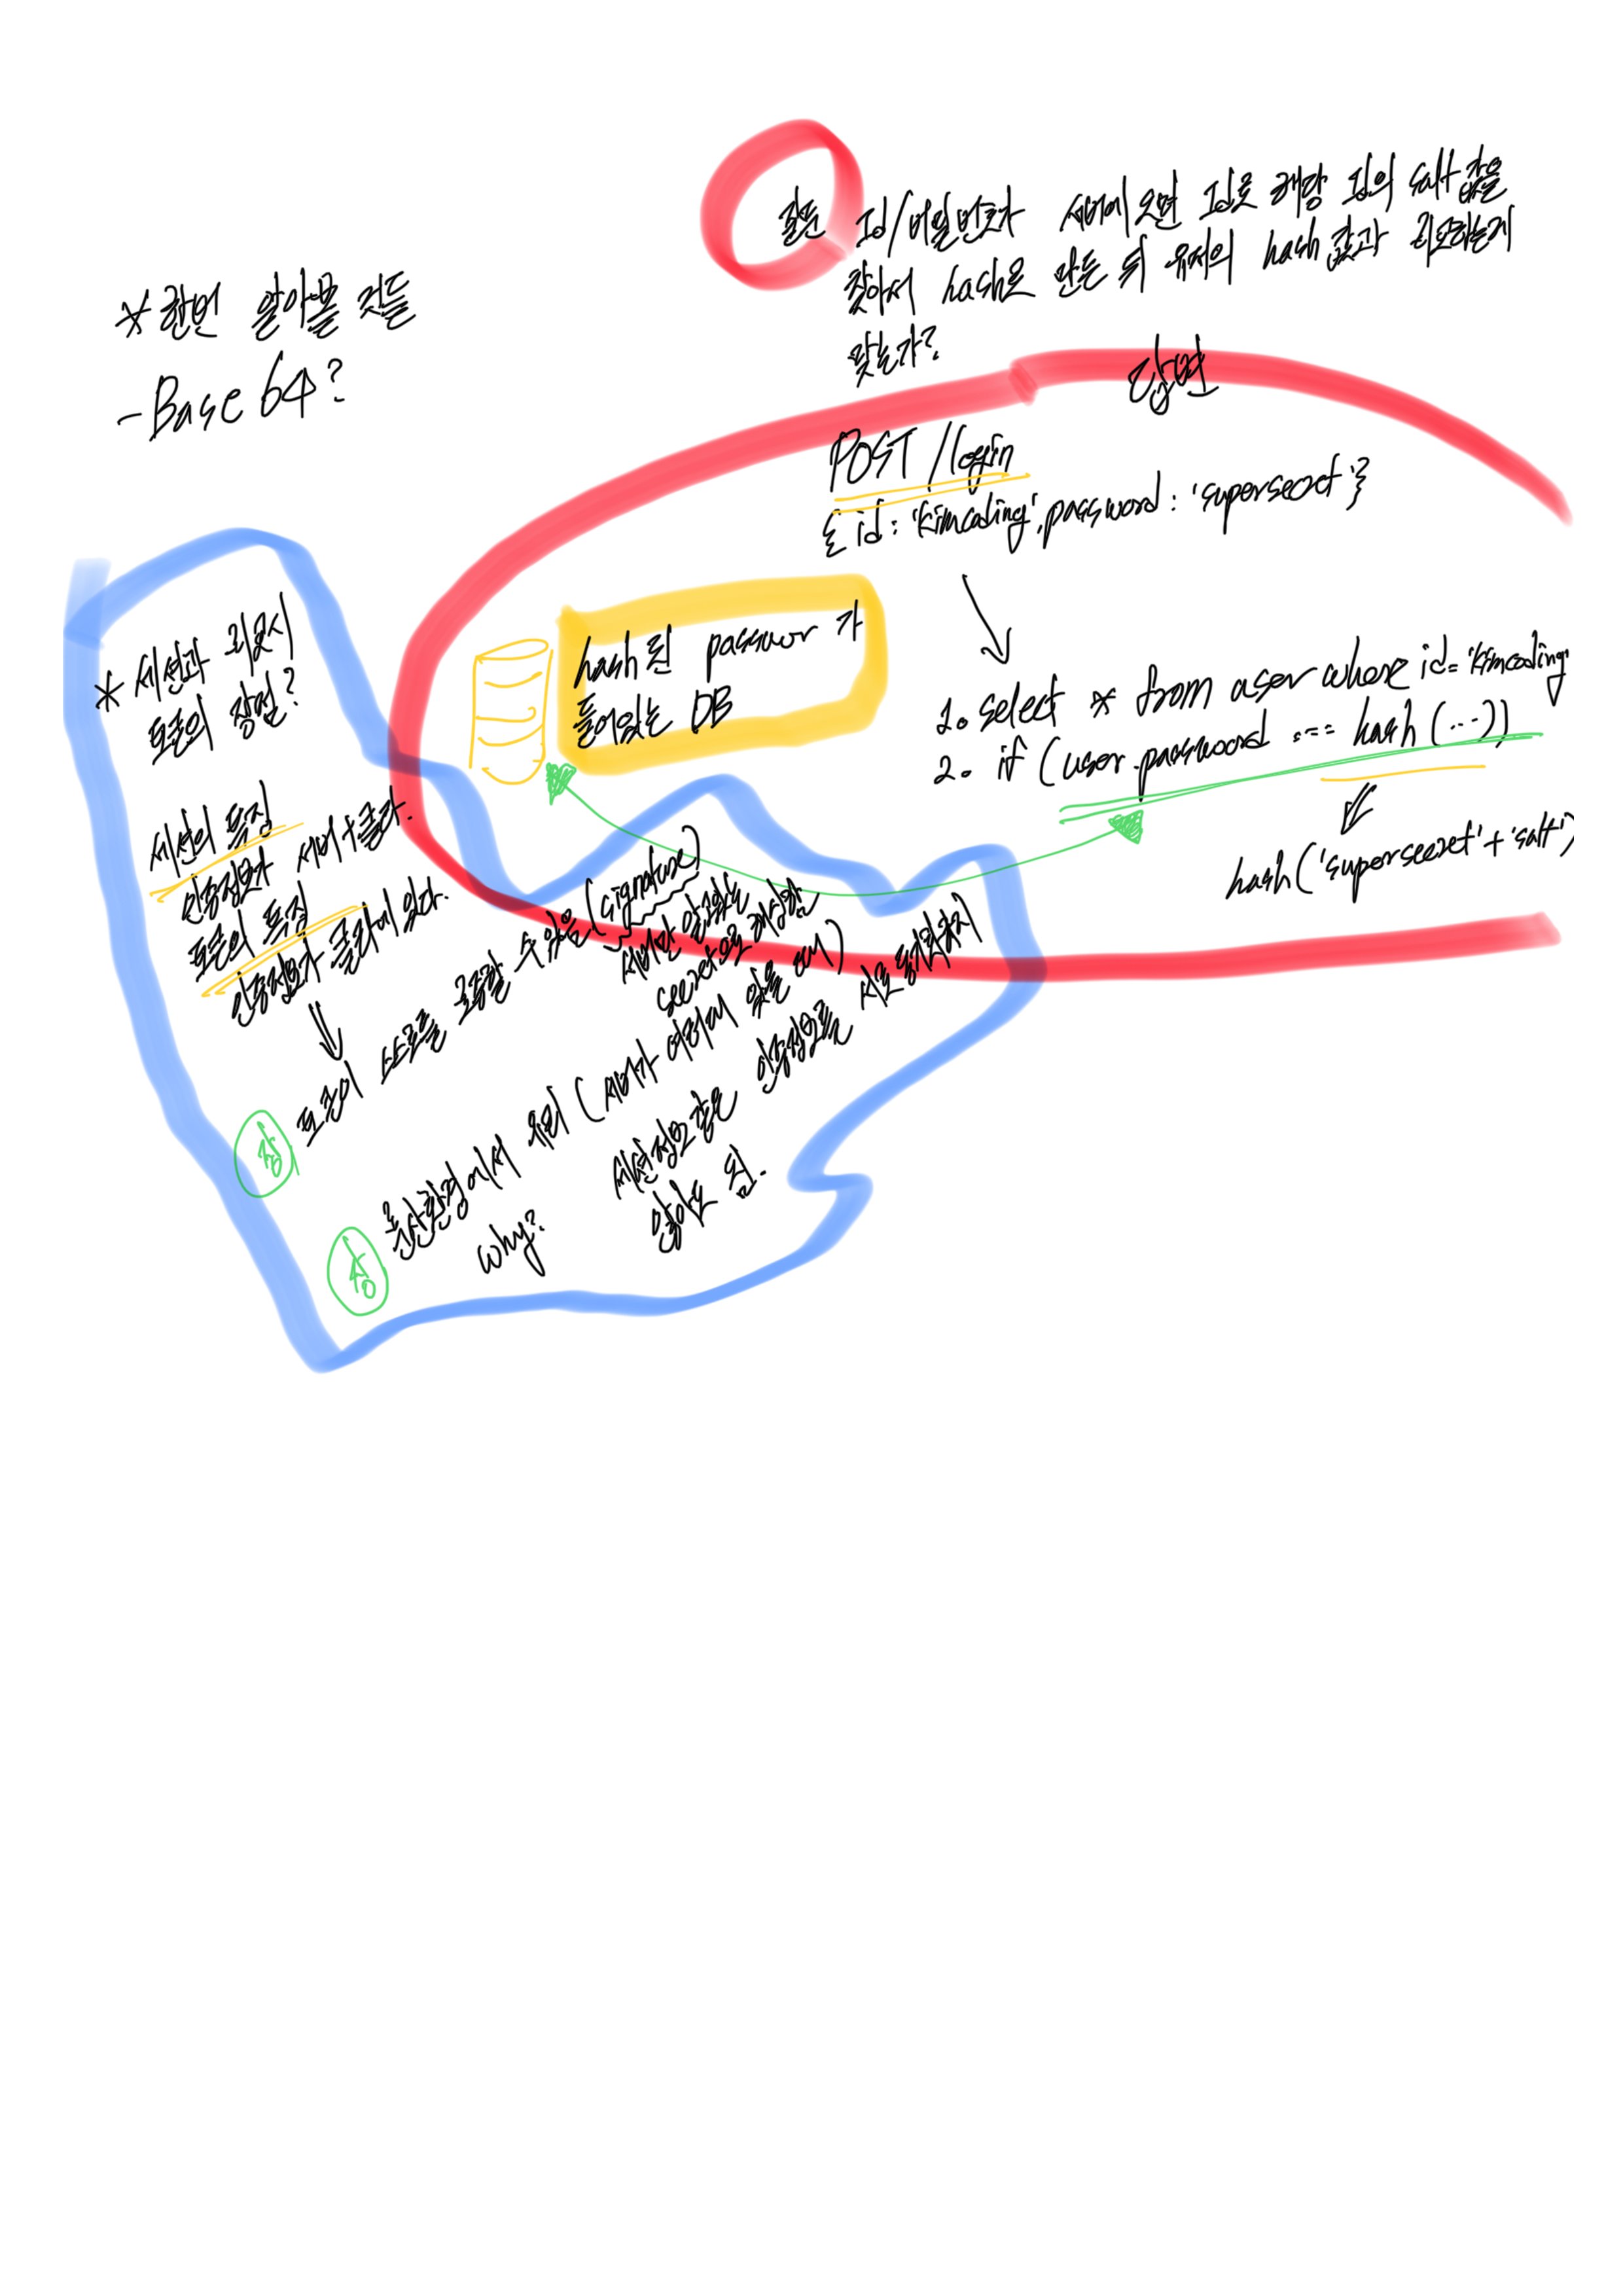 * 한번 알아볼 것들
- Base 64?
질문 Id/비밀번호가 서버에 오면 Id로 해당 Id의 salt 값을
찾아서 hash로 만든 뒤 유저의 hash 값과 비교하는게
맞는가?
답변
POST /login
{ id: 'kimcoding', password: 'supersecret' }
1. select * from user where id= 'kimcoding'
2. if (user.password === hash (...))
hash ('supersecret' + 'salt')
hash 된 passwor 가
들어있는 DB
* 세션과 비교시
토큰의 장점?
세션의 특징
인증정보가 서버+클라.
토큰의 특징
인증정보가 클라에 있다.
장 토큰이 스스로를 검증할 수 있음 (signature)
서버만 알고있는
secret으로 해싱한
장 분산환경에서 유리 (서버가 여러대 있을 때)
why?
세션정보같은 인증정보를 서로 동기화하지
않아도 됨.